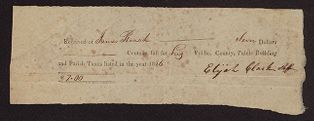 Received of James Hough Seven Dollars
Cents in full for his Public, County, Public Building
and Parish Taxes listed in the year 1816
$7.00 Elijah Clark Shff